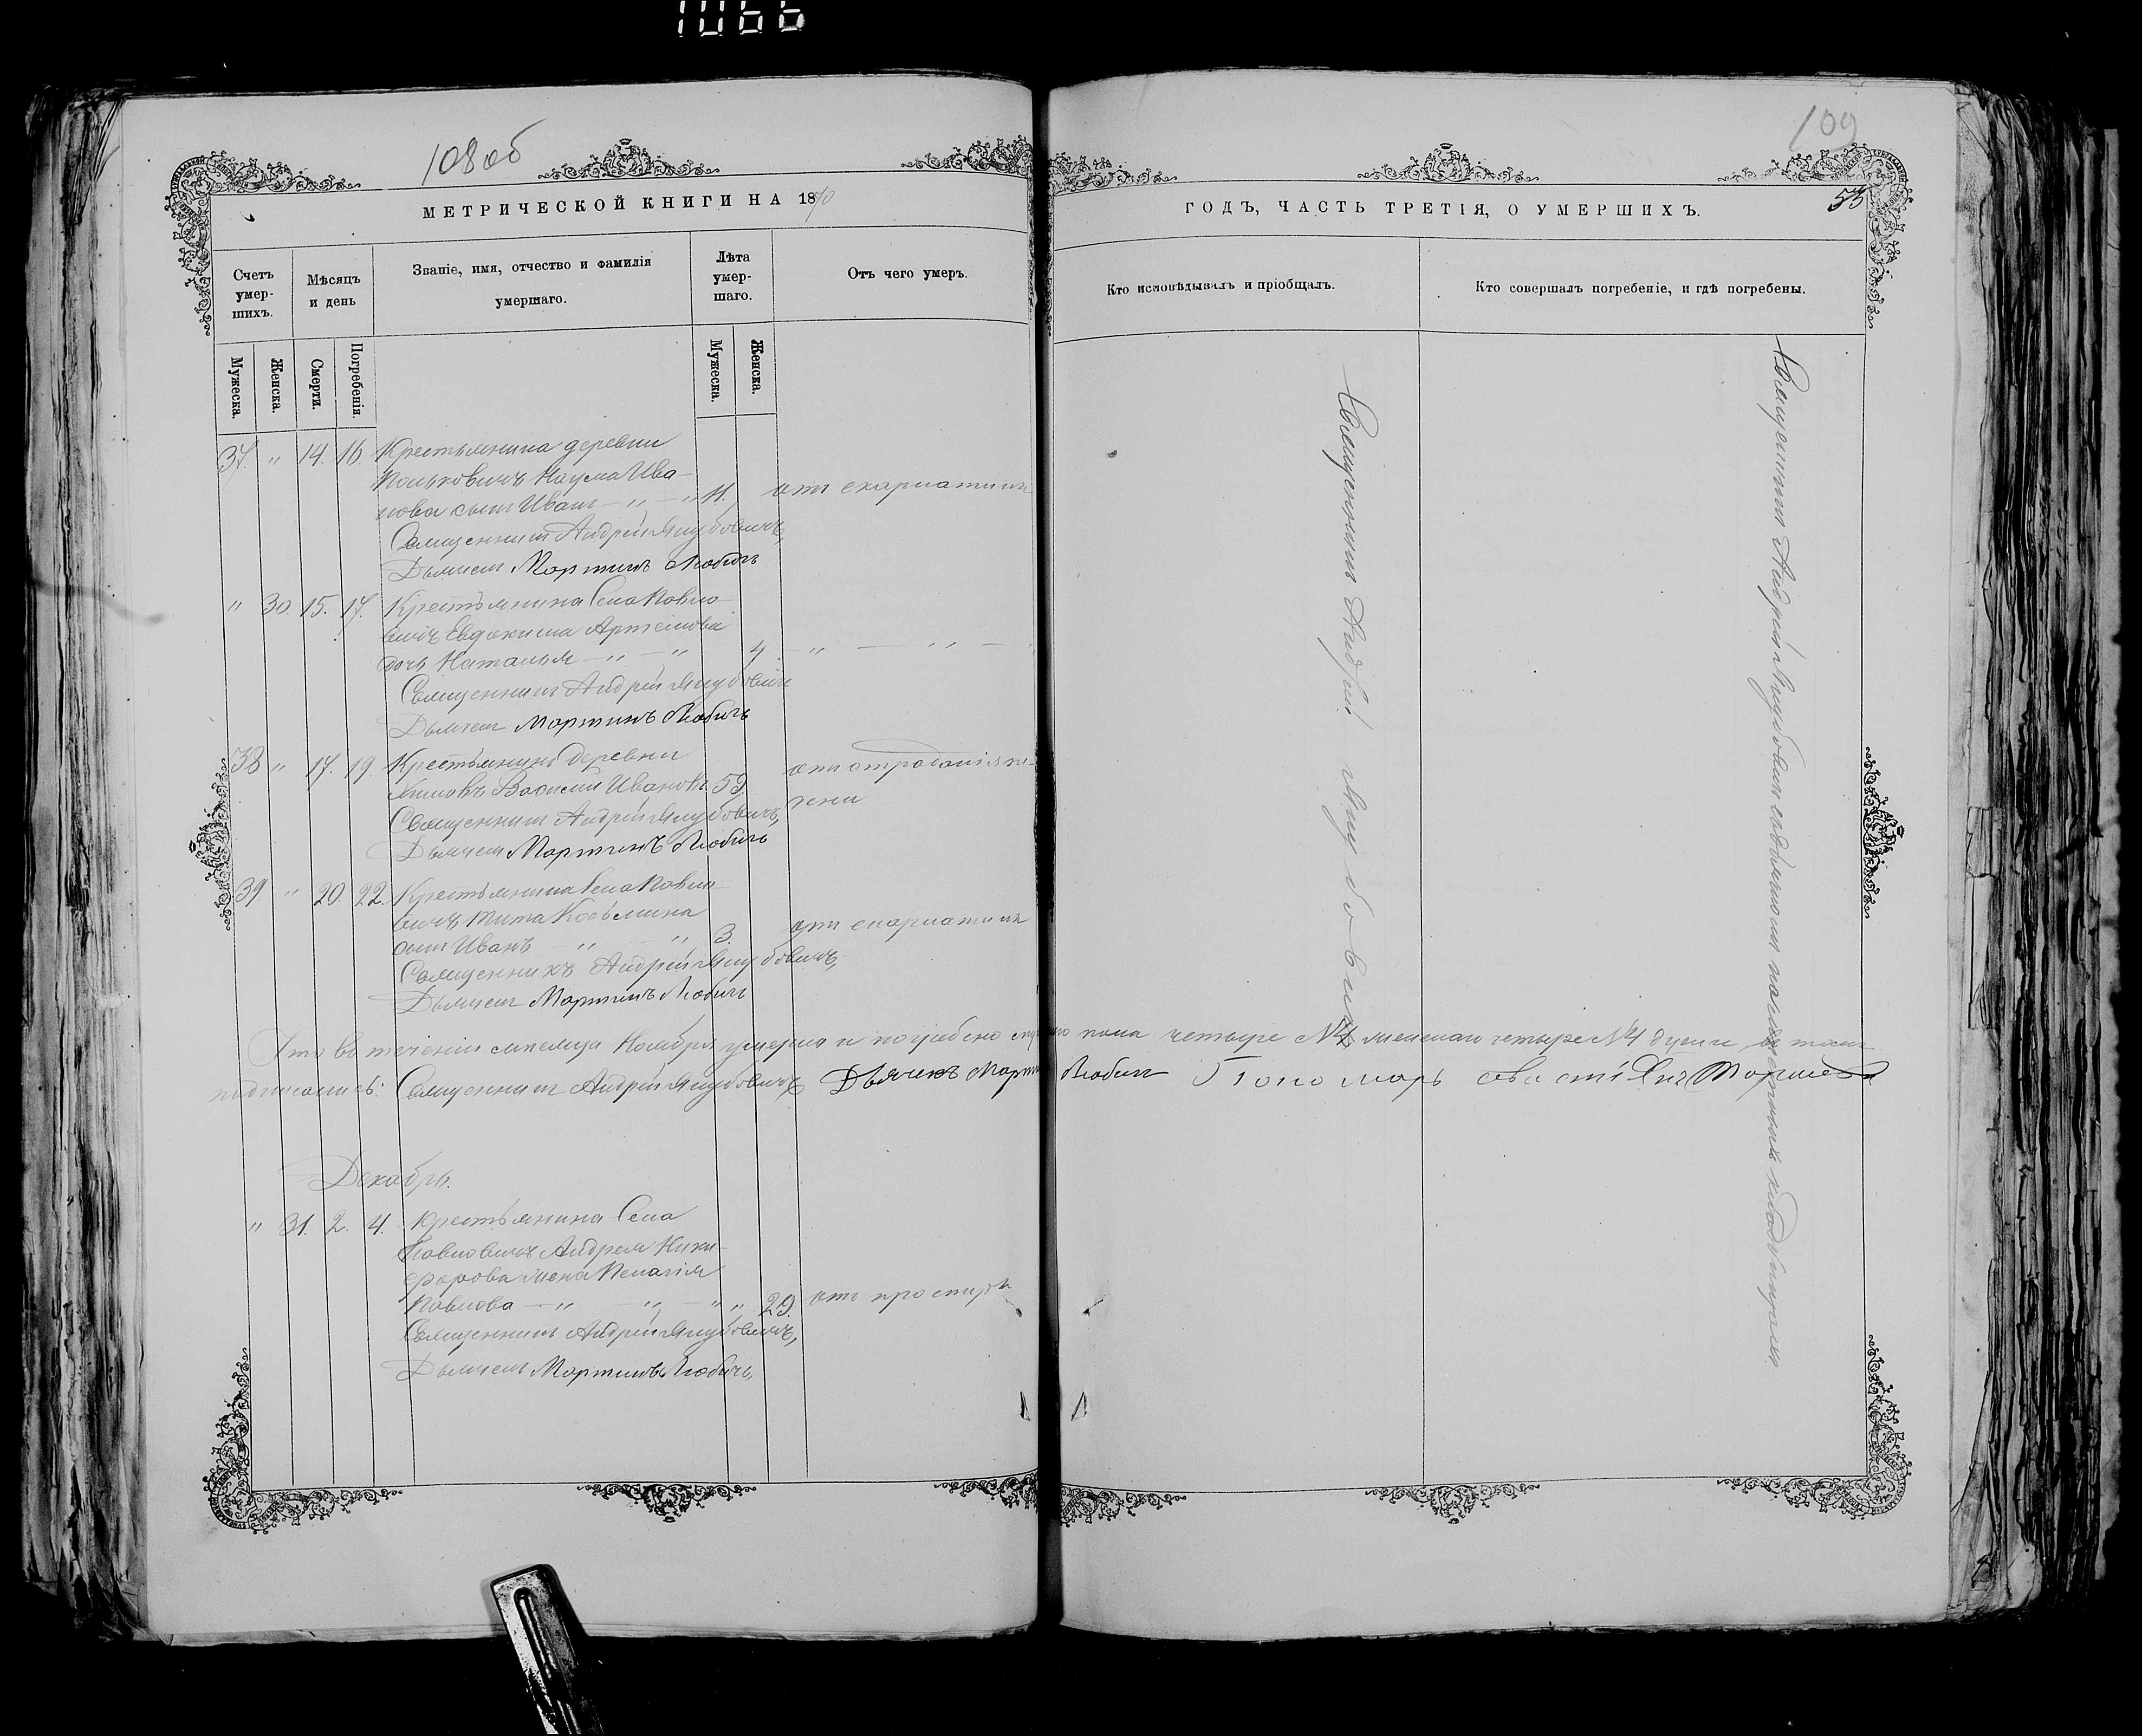 1066
108об
109
53
МЕТРИЧЕСКОЙ КНИГИ НА 1870
ГОДЪ, ЧАСТЬ ТРЕТІЯ, О УМЕРШИХЪ.
Счетъ умер- шихъ.
Мѣсяцъ и день
Званіе, имя, отчество и фамилія умершаго.
Лѣта умер- шаго.
Отъ чего умеръ.
Кто исповѣдывалъ и пріобщалъ.
Кто совершалъ погребеніе, и гдѣ погребены.
Мужеска.
Женска.
Смерти.
Погребенія.
Мужеска.
Женска.
37. " 14. 16. Крестьянина деревни
Наума Ива-
нова сынъ Иванъ — " — " 11. отъ скарлатины
Священникъ Андрей Якубовичъ,
Дьячекъ Мартинъ Любичъ
" 30. 15. 17. Крестьянина Села Повло-
вичъ Евдокима Артемова
дочь Наталья — " — " 4 — " — " —
Священникъ Андрей Якубовичъ
Дьячекъ Мартинъ Любичъ
38 " 17. 19. Крестьянинъ Деревни
Василій Ивановъ 59. отъ страданія пе-
чени
Священникъ Андрей Якубовичъ,
Дьячекъ Мартинъ Любичъ
39 " 20. 22. Крестьянина Села Повло-
вичъ Тита Козьмина
сынъ Иванъ " " 3. отъ скарлатины
Священникъ Андрей Якубовичъ,
Дьячекъ Мартинъ Любичъ
Что въ теченіи мѣсяца Ноября умерло и погребено муж пола четыре №4 женскаго четыре №4 души въ томъ
подписались: Священникъ Андрей Якубовичъ Дьячекъ Мартинъ Любичъ Пономарь
Декабрь.
" 31. 2. 4. Крестьянина Села
Повловичъ Андрея Ники-
форова жена Пелагія
Повлова — " — " — " " 29. отъ простуды
Священникъ Андрей Якубовичъ,
Дьячекъ Мартинъ Любичъ,
Священникъ Андрей Якубовичъ
Священникъ Андрей Якубовичъ на кладбищахъ